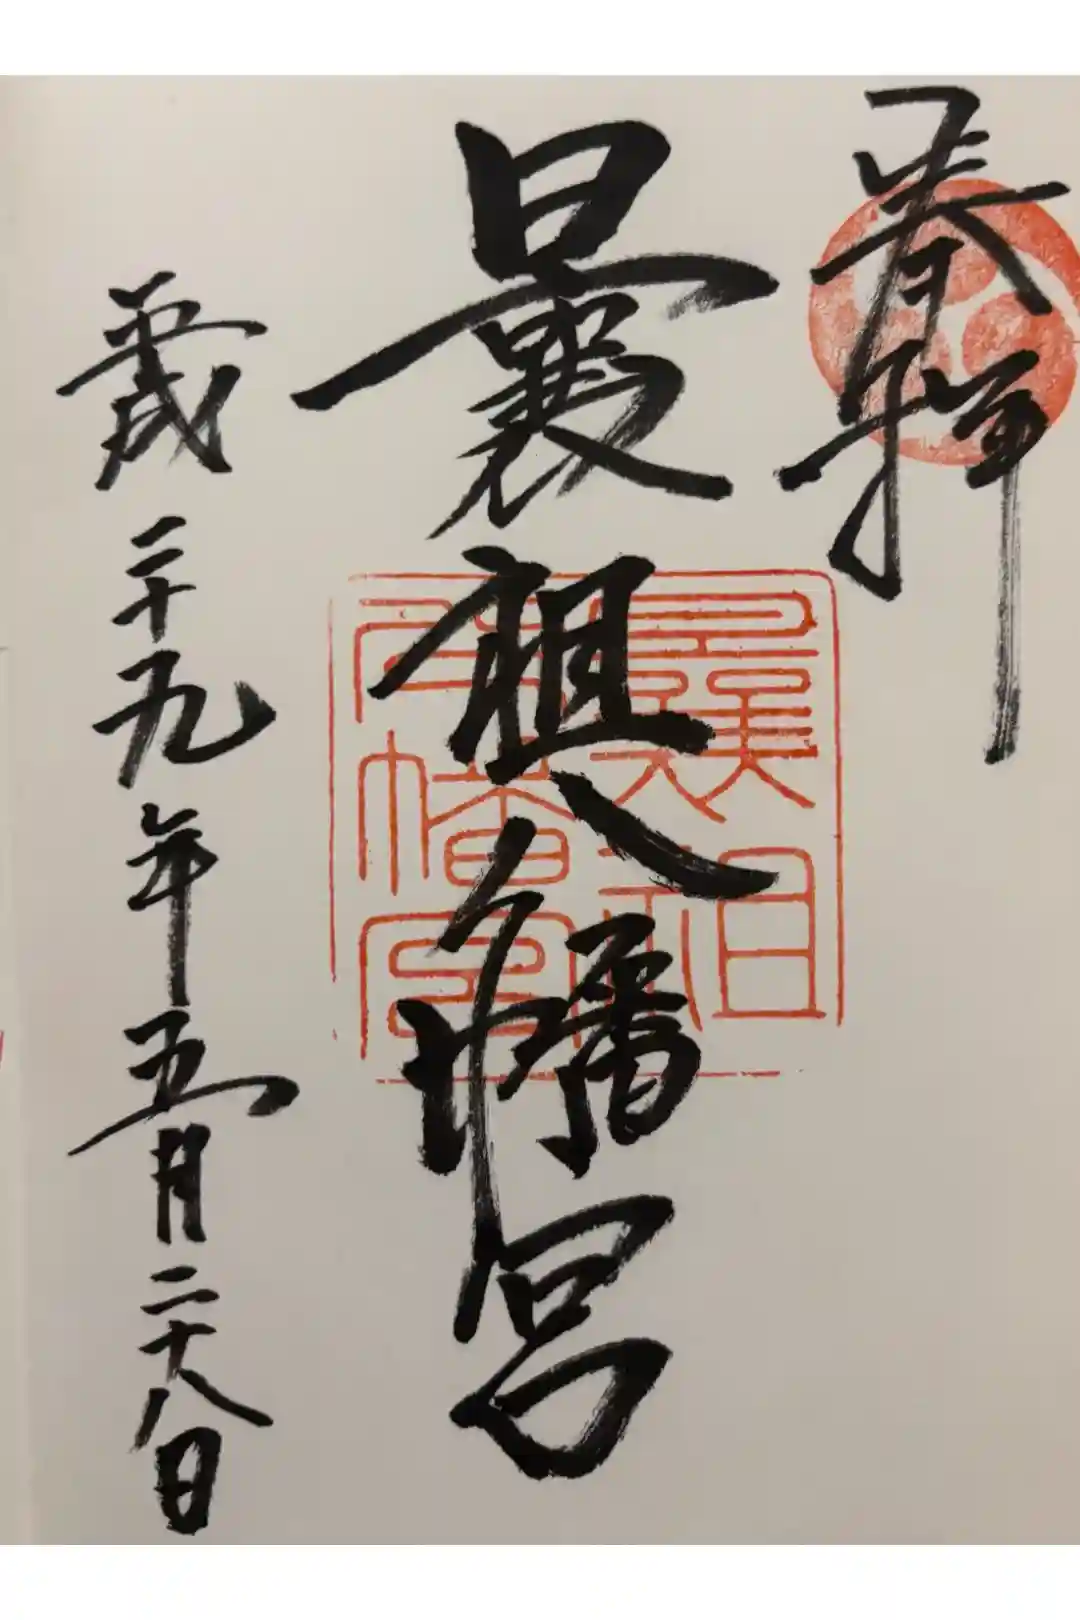 奉拜
曩祖八幡宮
平成二十九年五月二十八日
曩祖八幡宮